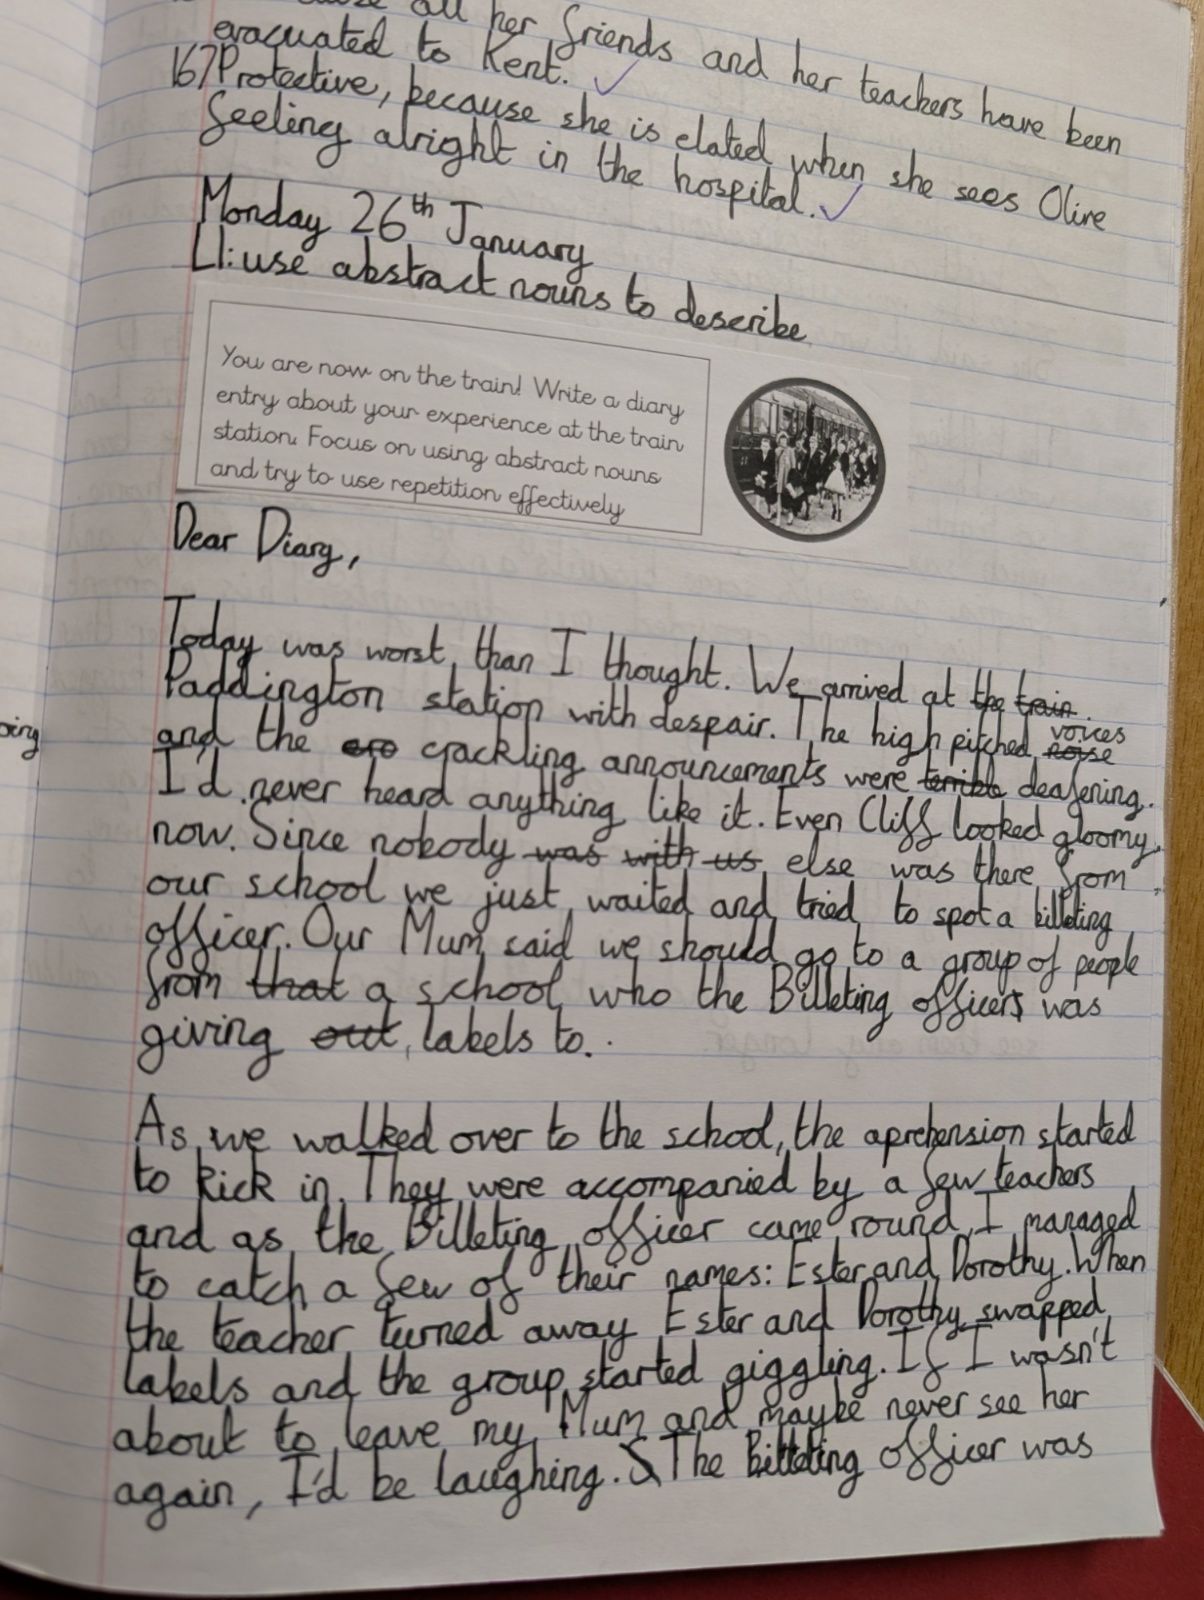 all her friends and her teachers have been
evacuated to Kent.
16) Protective, because she is elated when she sees Olive
feeling alright in the hospital.
Monday 26th January
LI: use abstract nouns to describe
You are now on the train! Write a diary
entry about your experience at the train
station. Focus on using abstract nouns
and try to use repetition effectively
Dear Diary,
Today was worst than I thought. We arrived at the train
Paddington station with despair. The high pitched noise voices
and the cro crackling announcements were terrible deafening.
I'd never heard anything like it. Even Cliff looked gloomy
now. Since nobody was with us else was there from
our school we just waited and tried to spot a billeting
officer. Our Mum said we should go to a group of people
from that a school who the Billeting officers was
giving out labels to.
As we walked over to the school, the aprehension started
to kick in. They were accompanied by a few teachers
and as the Billeting officer came round I managed
to catch a few of their names: Ester and Dorothy. When
the teacher turned away Ester and Dorothy swapped
labels and the group started giggling. If I wasn't
about to leave my Mum and maybe never see her
again, I'd be laughing. The Billeting officer was